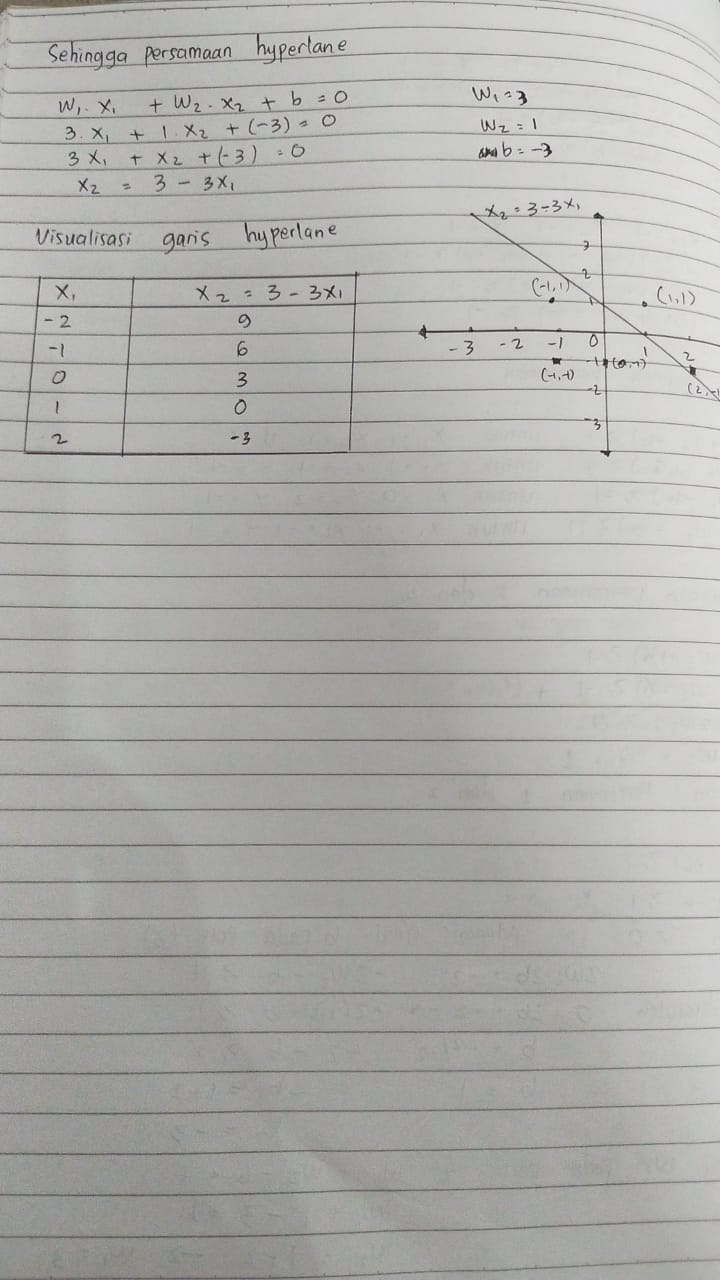 Sehingga persamaan hyperlane
W₁. X₁ + W₂. X₂ + b = 0
3. X₁ + 1. X₂ + (-3) = 0
3 X₁ + X₂ + (-3) = 0
X₂ = 3 - 3X₁
W₁ = 3
W₂ = 1
b = -3
Visualisasi garis hyperlane
X₁ X₂ = 3 - 3X₁
-2 9
-1 6
0 3
1 0
2 -3
X₂ = 3 - 3X₁
3
2
(-1,1) 1 (1,1)
-3 -2 -1 0 1 2
(-1,-1) -1 (0,-1)
-2 (2,-1
-3